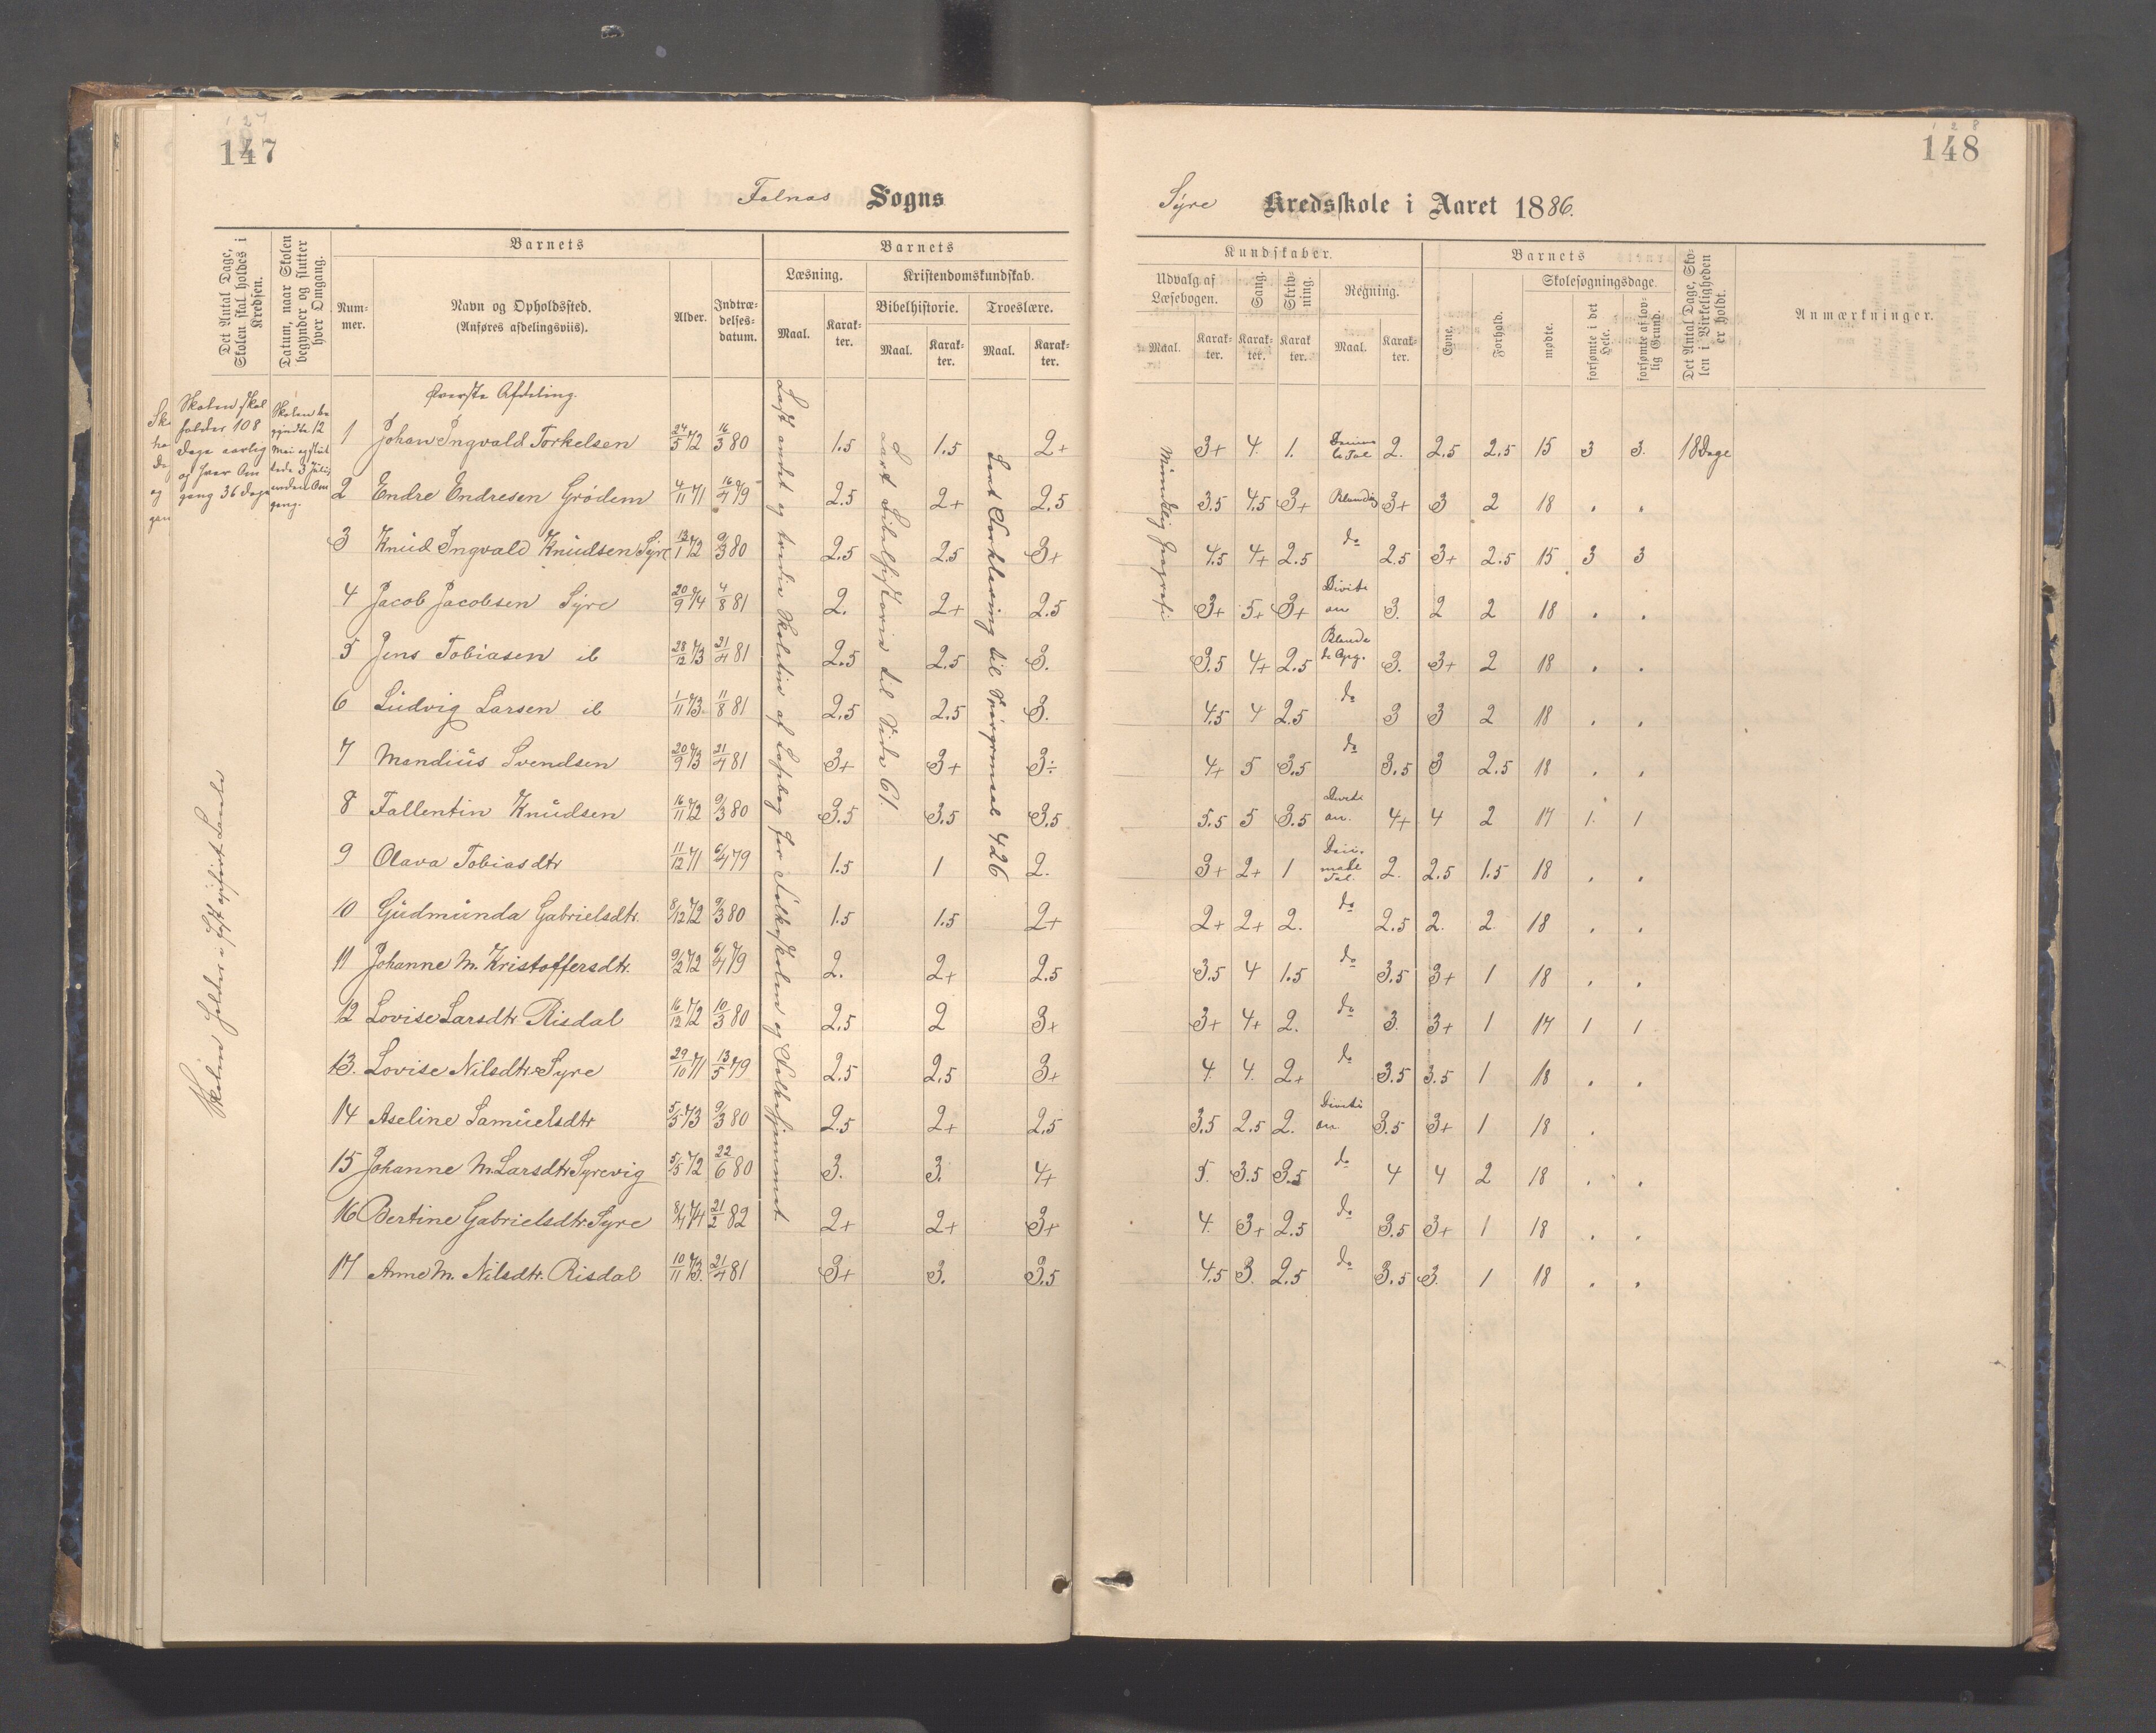 127
147
128
148
Falnas Sogns
Syre Kredsskole i Aaret 1886.
Det Antal Dage, Skolen skal holdes i Kredsen.
Datum, naar Skolen begynder og slutter hver Omgang.
Barnets
Num-mer.
Navn og Opholdssted.
(Anføres afdelingsviis).
Alder.
Indtræ-delses-datum.
Barnets
Læsning.
Maal.
Karak-ter.
Kristendomskundskab.
Bibelhistorie.
Maal.
Karak-ter.
Troeslære.
Maal.
Karak-ter.
Kundskaber.
Udvalg af Læsebogen.
Maal.
Karak-ter.
Sang.
Karak-ter.
Skriv-ning.
Karak ter.
Regning.
Maal.
Karak-ter.
Barnets
Evne.
Forhold.
Skolesøgningsdage.
mødte.
forsømte i det Hele.
forsømte af lov-lig Grund.
Det Antal Dage, Sko-len i Virkeligheden er holdt.
Anmærkninger.
Skolen skal holdes 108 Dage aarlig og hver Om gang 36 Dage
Skolen be gyndte 12 Mai og slut tede 3 Juli, anden Om gang.
Øverste Afdeling.
1 Johan Ingvald Torkelsen 24/5 72 16/3 80 1.5 1.5 2+ 3+ 4. 1. 2. 2.5 2.5 15 3 3. 18 Dage
2 Endre Endresen Grødem 4/11 71 16/4 79 2.5 2+ 2.5 3.5 4.5 3+ Blanding 3+ 3 2 18 . .
3 Knud Ingvald Knudsen Syre 13/1 72 9/3 80 2.5 2.5 3+ 4.5 4+ 2.5 do 2.5 3+ 2.5 15 3 3
4 Jacob Jacobsen Syre 20/9 74 4/8 81 2. 2+ 2.5 3+ 5+ 3+ Diviti on 3. 2 2 18 . .
5 Jens Tobiasen ib 28/12 73 21/4 81 2.5 2.5 3. 3.5 4+ 2.5 Blande de Opg. 3. 3+ 2 18 . .
6 Ludvig Larsen ib 1/11 73. 11/8 81 2.5 2.5 3. 4.5 4 2.5 do 3 3 2 18 . .
7 Mandius Svendsen 20/9 73 21/4 81 3+ 3+ 3÷ 4+ 5 3.5 do 3.5 3 2.5 18 . .
8 Fallentin Knudsen 16/11 72 9/3 80 3.5 3.5 3.5 5.5 5 3.5 Diviti on. 4+ 4 2 17 1. 1
9 Olava Tobiasdtr 11/12 71 6/4 79 1.5 1 2. 3+ 2+ 1 Deci-mabl Tal. 2. 2.5 1.5 18 . .
10 Gudmunda Gabrielsdtr. 8/12 72 9/3 80 1.5 1.5 2+ 2+ 2+ 2. do 2.5 2. 2. 18 . .
11 Johanne M. Kristoffersdtr. 9/2 72 6/4 79 2. 2+ 2.5 3.5 4 1.5 do 3.5 3+ 1 18 . .
12 Lovise Larsdtr Risdal 16/12 72 10/3 80 2.5 2 3+ 3+ 4+ 2. do 3. 3+ 1 17 1 1
13. Lovise Nilsdtr Syre 29/10 71 13/5 79 2.5 2.5 3+ 4. 4. 2+ do 3.5 3.5 1 18 . .
14 Aseline Samuelsdtr 5/5 73 9/3 80 2.5 2+ 2.5 3.5 2.5 2. Diviti on 3.5 3+ 1 18 .
15 Johanne M. Larsdtr Syrevig 5/5 72 22/6 80 3. 3. 4+ 5. 3.5 3.5 do 4 4 2 18 . .
16 Bertine Gabrielsdtr Syre 8/4 74 21/2 82 2+ 2+ 3+ 4. 3+ 2.5 do 3.5 3+ 1 18 . .
17 Anne M. Nilsdtr. Risdal 10/11 73. 21/4 81 3+ 3. 3.5 4.5 3. 2.5 do 3.5 3. 1 18 . .
Læst andet og tredie Skoletrin af Læsebog for Folkeskolen og Folkehjemmet
Lært Bibelhistorie til Side 61.
Lært Forklaring til Spørgsmaal 426
Mundtlig Geografi